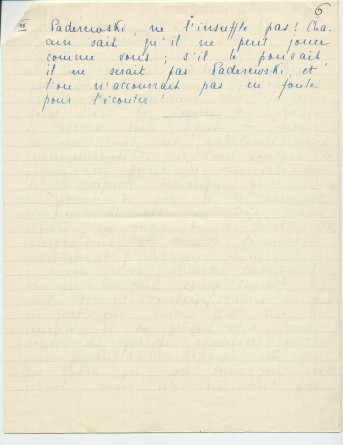 6
Paderewski, ne l'insuffle pas! Cha-
cun sait qu'il ne peut jouer
comme vous; s'il le pouvait
il ne serait pas Paderewski, et
l'on n'accourrait pas en foule
pour l'écouter!